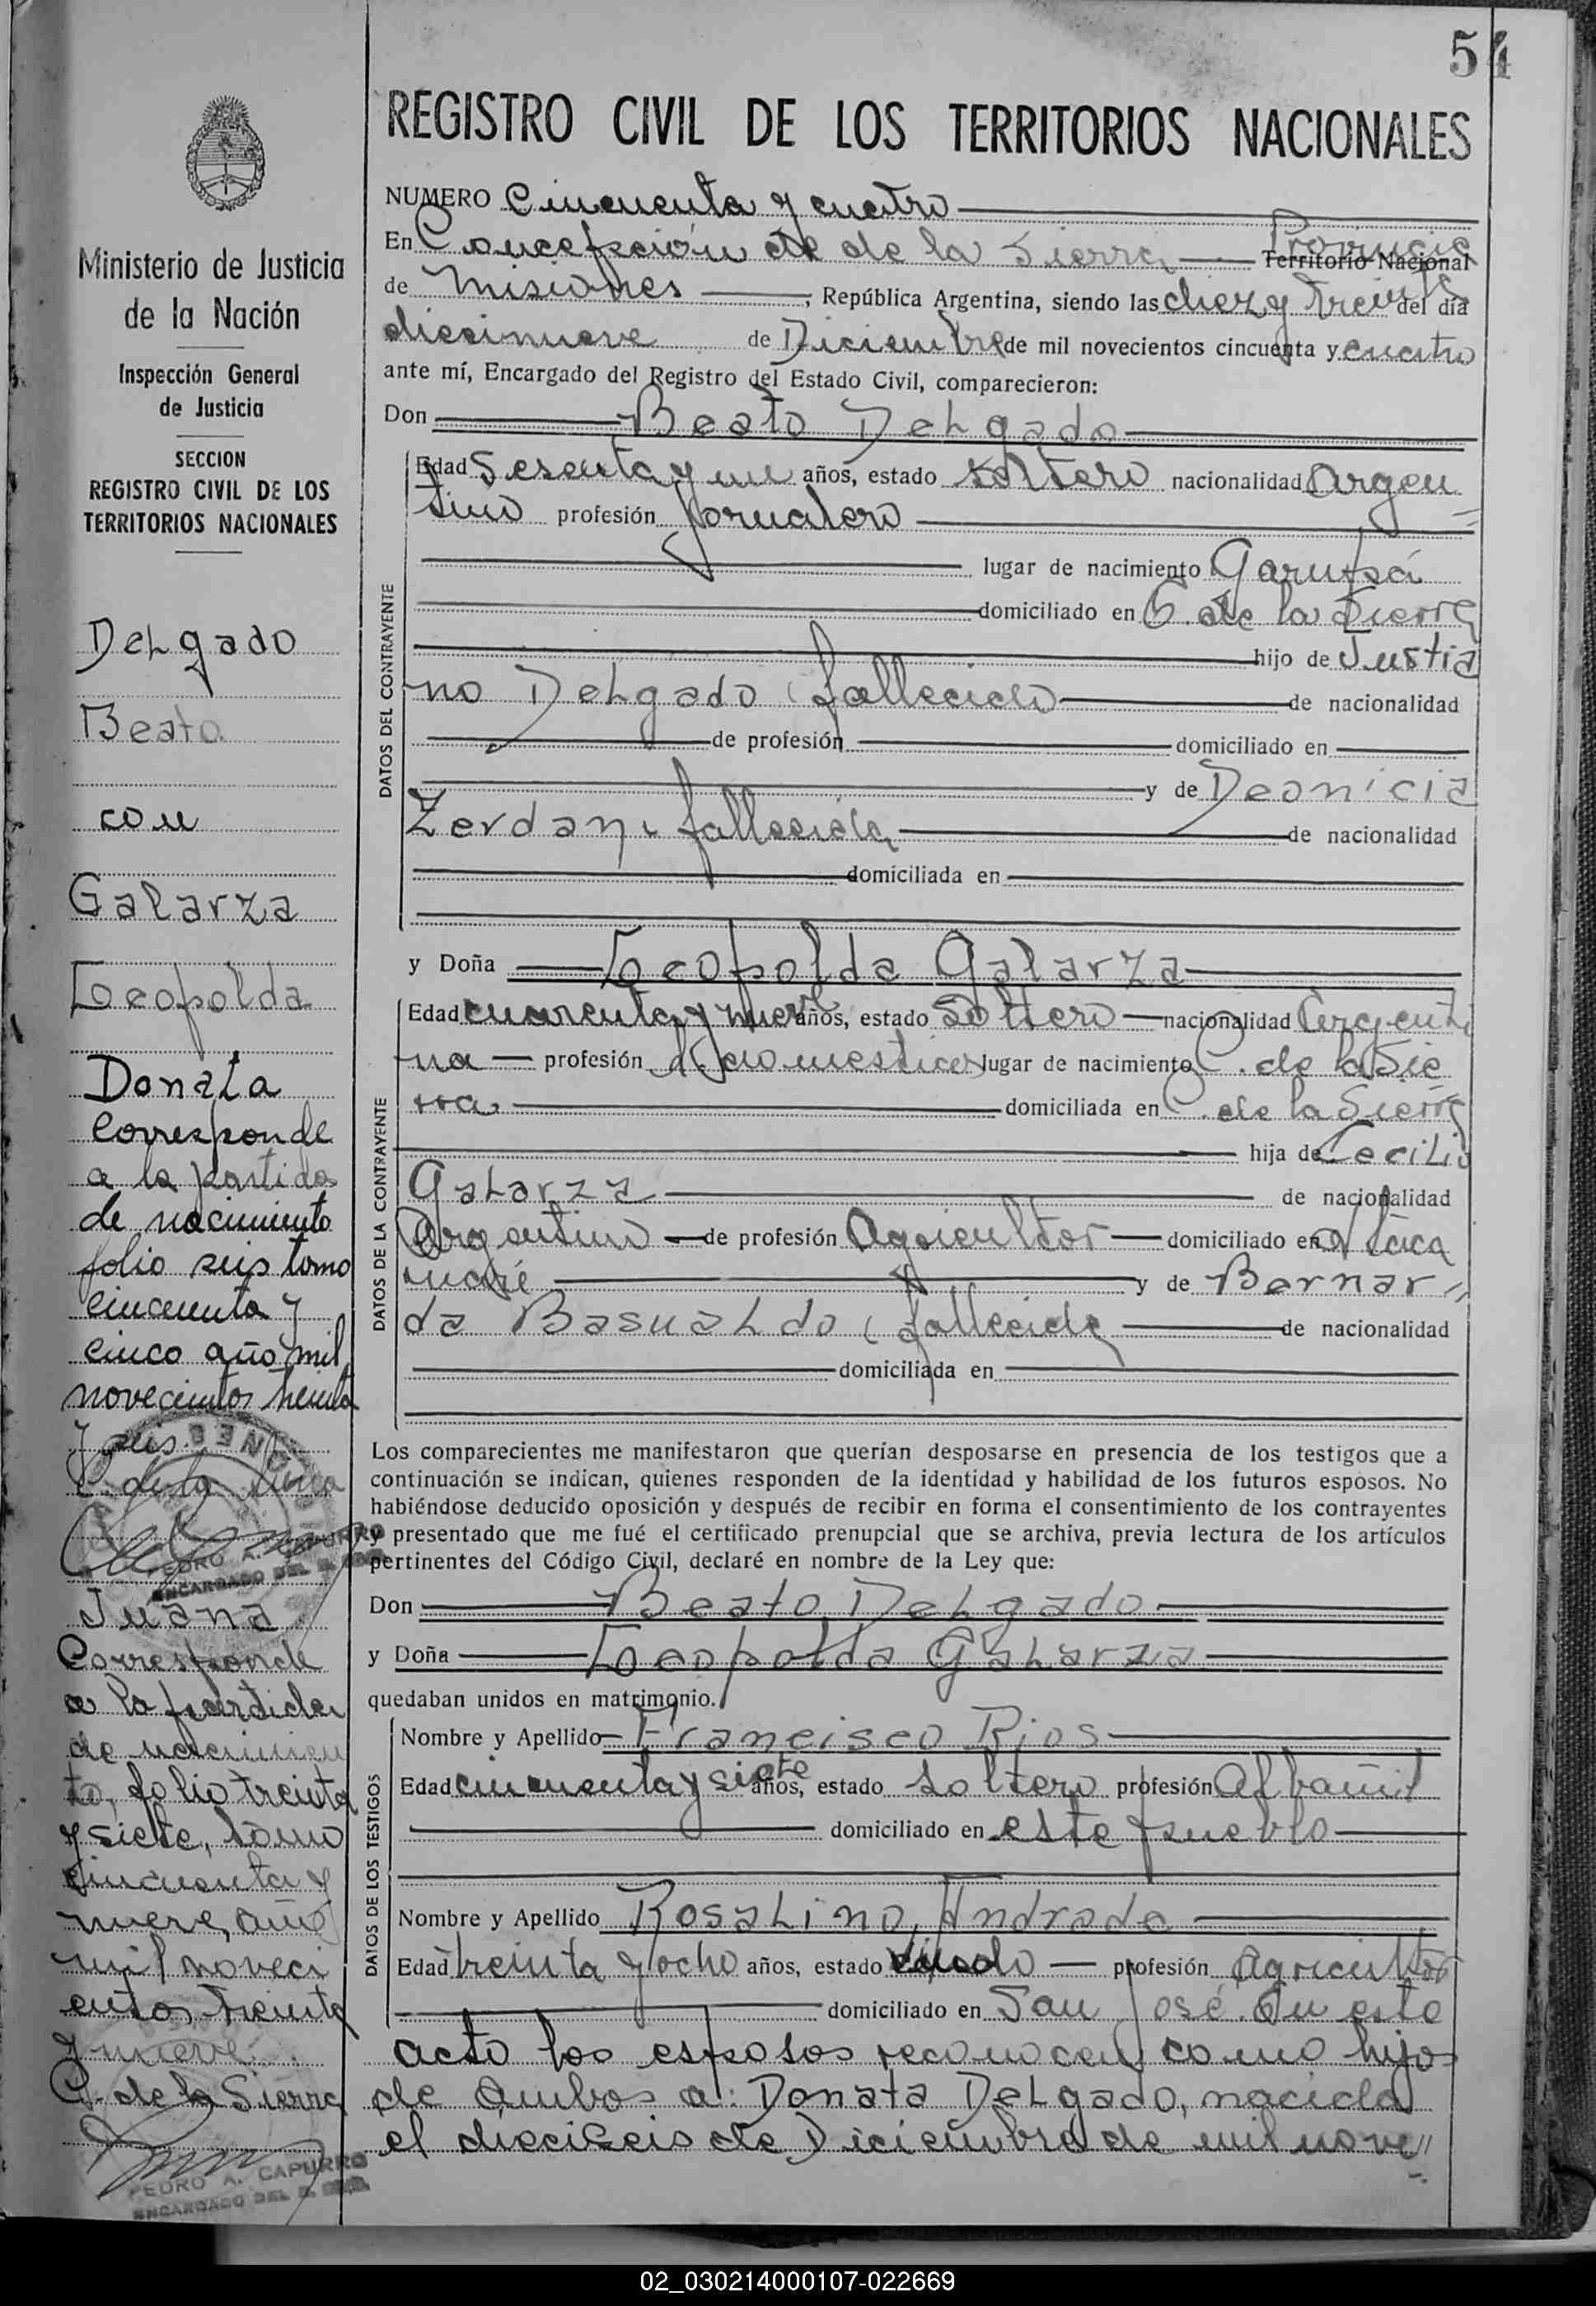 54
REGISTRO CIVIL DE LOS TERRITORIOS NACIONALES
Ministerio de Justicia
de la Nación
Inspección General
de Justicia
SECCION
REGISTRO CIVIL DE LOS
TERRITORIOS NACIONALES
Delgado
Beato
con
Galarza
Leopolda
Donata
Corresponde
a la partida
de nacimiento
folio seis tomo
cincuenta y
cinco año mil
novecientos treinta
y seis.
C. de la Sierra
PEDRO A. CAPURRO
ENCARGADO DEL R.
Juana
Corresponde
a la partida
de nacimien
to, folio treinta
y siete, tomo
cincuenta y
nueve, año
mil noveci
entos treinta
y nueve.
C. de la Sierra
PEDRO A. CAPURRO
ENCARGADO DEL R.
NUMERO Cincuenta y cuatro
En Concepción de de la Sierra Provincia Territorio Nacional
de Misiones, República Argentina, siendo las diez y treinta del día
diecinueve de Diciembre de mil novecientos cincuenta y cuatro
ante mí, Encargado del Registro del Estado Civil, comparecieron:
Don Beato Delgado
DATOS DEL CONTRAYENTE
Edad Sesenta y un años, estado soltero nacionalidad Argen
tino profesión Jornalero
lugar de nacimiento Garupá
domiciliado en C. de la Sierra
hijo de Justia
no Delgado (fallecido de nacionalidad
de profesión domiciliado en
y de Deonicia
Zerdan fallecida de nacionalidad
domiciliada en
y Doña Leopolda Galarza
DATOS DE LA CONTRAYENTE
Edad cuarenta y nueve años, estado Soltera nacionalidad Argenti
na profesión q. domesticos lugar de nacimiento C. de la Sie
rra domiciliada en C. de la Sierra
hija de Cecilio
Galarza de nacionalidad
Argentino de profesión Agricultor domiciliado en Itaca
ruaré y de Bernar
da Basualdo (fallecida de nacionalidad
domiciliada en
Los comparecientes me manifestaron que querían desposarse en presencia de los testigos que a
continuación se indican, quienes responden de la identidad y habilidad de los futuros esposos. No
habiéndose deducido oposición y después de recibir en forma el consentimiento de los contrayentes
y presentado que me fué el certificado prenupcial que se archiva, previa lectura de los artículos
pertinentes del Código Civil, declaré en nombre de la Ley que:
Don Beato Delgado
y Doña Leopolda Galarza
quedaban unidos en matrimonio.
DATOS DE LOS TESTIGOS
Nombre y Apellido Francisco Rios
Edad cincuenta y siete años, estado soltero profesión Albañil
domiciliado en este pueblo
Nombre y Apellido Rosalino Andrade
Edad treinta y ocho años, estado casado profesión Agricultor
domiciliado en San José. En este
acto los esposos reconocen como hijos
de ambos a: Donata Delgado, nacida
el dieciseis de Diciembre de mil nove
02_030214000107-022669